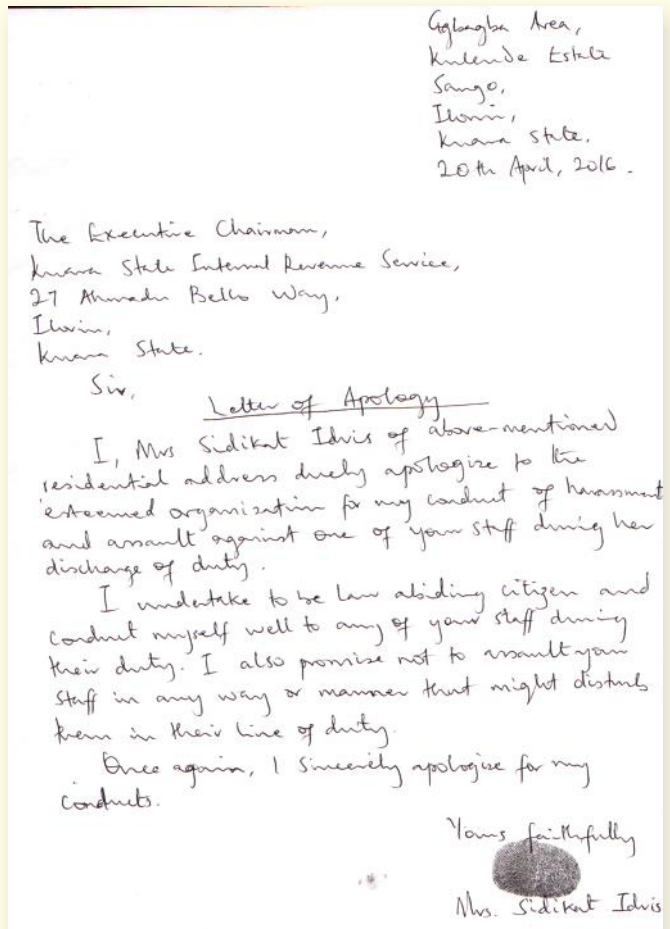 Ggbagba Area,
Kulende Estate
Sango,
Ilorin,
Kwara State.
20th April, 2016.
The Executive Chairman,
Kwara State Internal Revenue Service,
27 Ahmadu Bello Way,
Ilorin,
Kwara State.
Sir,
Letter of Apology
I, Mrs Sidikat Idris of above-mentioned
residential address duely apologize to the
esteemed organisation for my conduct of harassment
and assault against one of your staff during her
discharge of duty.
I undertake to be law abiding citizen and
conduct myself well to any of your staff during
their duty. I also promise not to assault your
staff in any way or manner that might disturb
them in their line of duty.
Once again, I sincerely apologize for my
conducts.
Yours faithfully
Mrs. Sidikat Idris